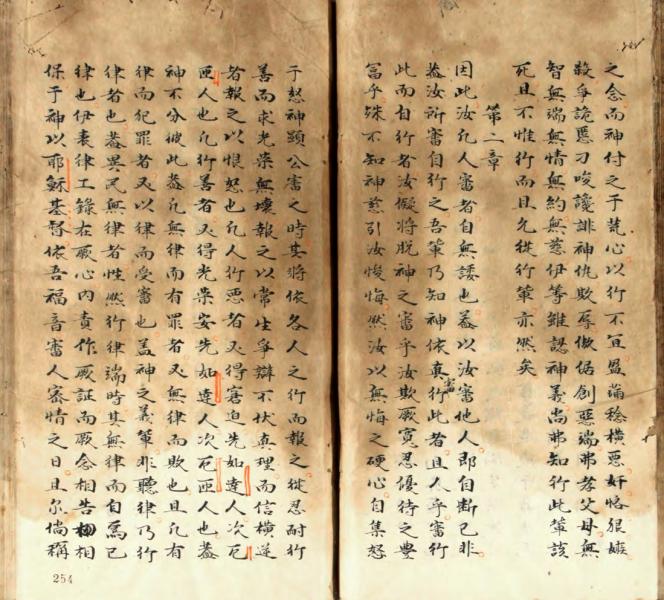 之念而神付之于荒心以行不宜盈滿稔橫惡奸恪狠嫉
殺爭詭惡刁唆讒誹神仇欺辱傲倨創惡端弗孝父母無
智無端無情無約無慈伊等雖認神義尚弗知行此輩該
死且不惟行而且允從行輩亦然矣
第二章
因此汝凡人審者自無諉也蓋以汝審他人即自斷已非
蓋汝所審自行之吾輩乃知神依真審行此者且人乎審行
此而自行者汝儗將脫神之審乎汝欺厥寬忍優待之豐
富乎殊不知神慈引汝悛悔然汝以無悔之硬心自集怒
于怒神顯公審之時其將依各人之行而報之從忍耐行
善而求光榮無壞報之以常生爭辯不伏真理而信橫逆
者報之以恨怒也凡人行惡者又得窘迫先如達人次厄
匝人也凡行善者又得光榮安先如達人次厄匝人也蓋
神不分彼此蓋凡無律而有罪者又無律而敗也且凡有
律而犯罪者又以律而受審也蓋神之義輩非聽律乃行
律者也蓋異民無律者性然行律端時其無律而自為已
律也伊表律工錄在厥心內責作厥証而厥念相告相
保于神以耶穌基督依吾福音審人密情之日且尔倘稱
254